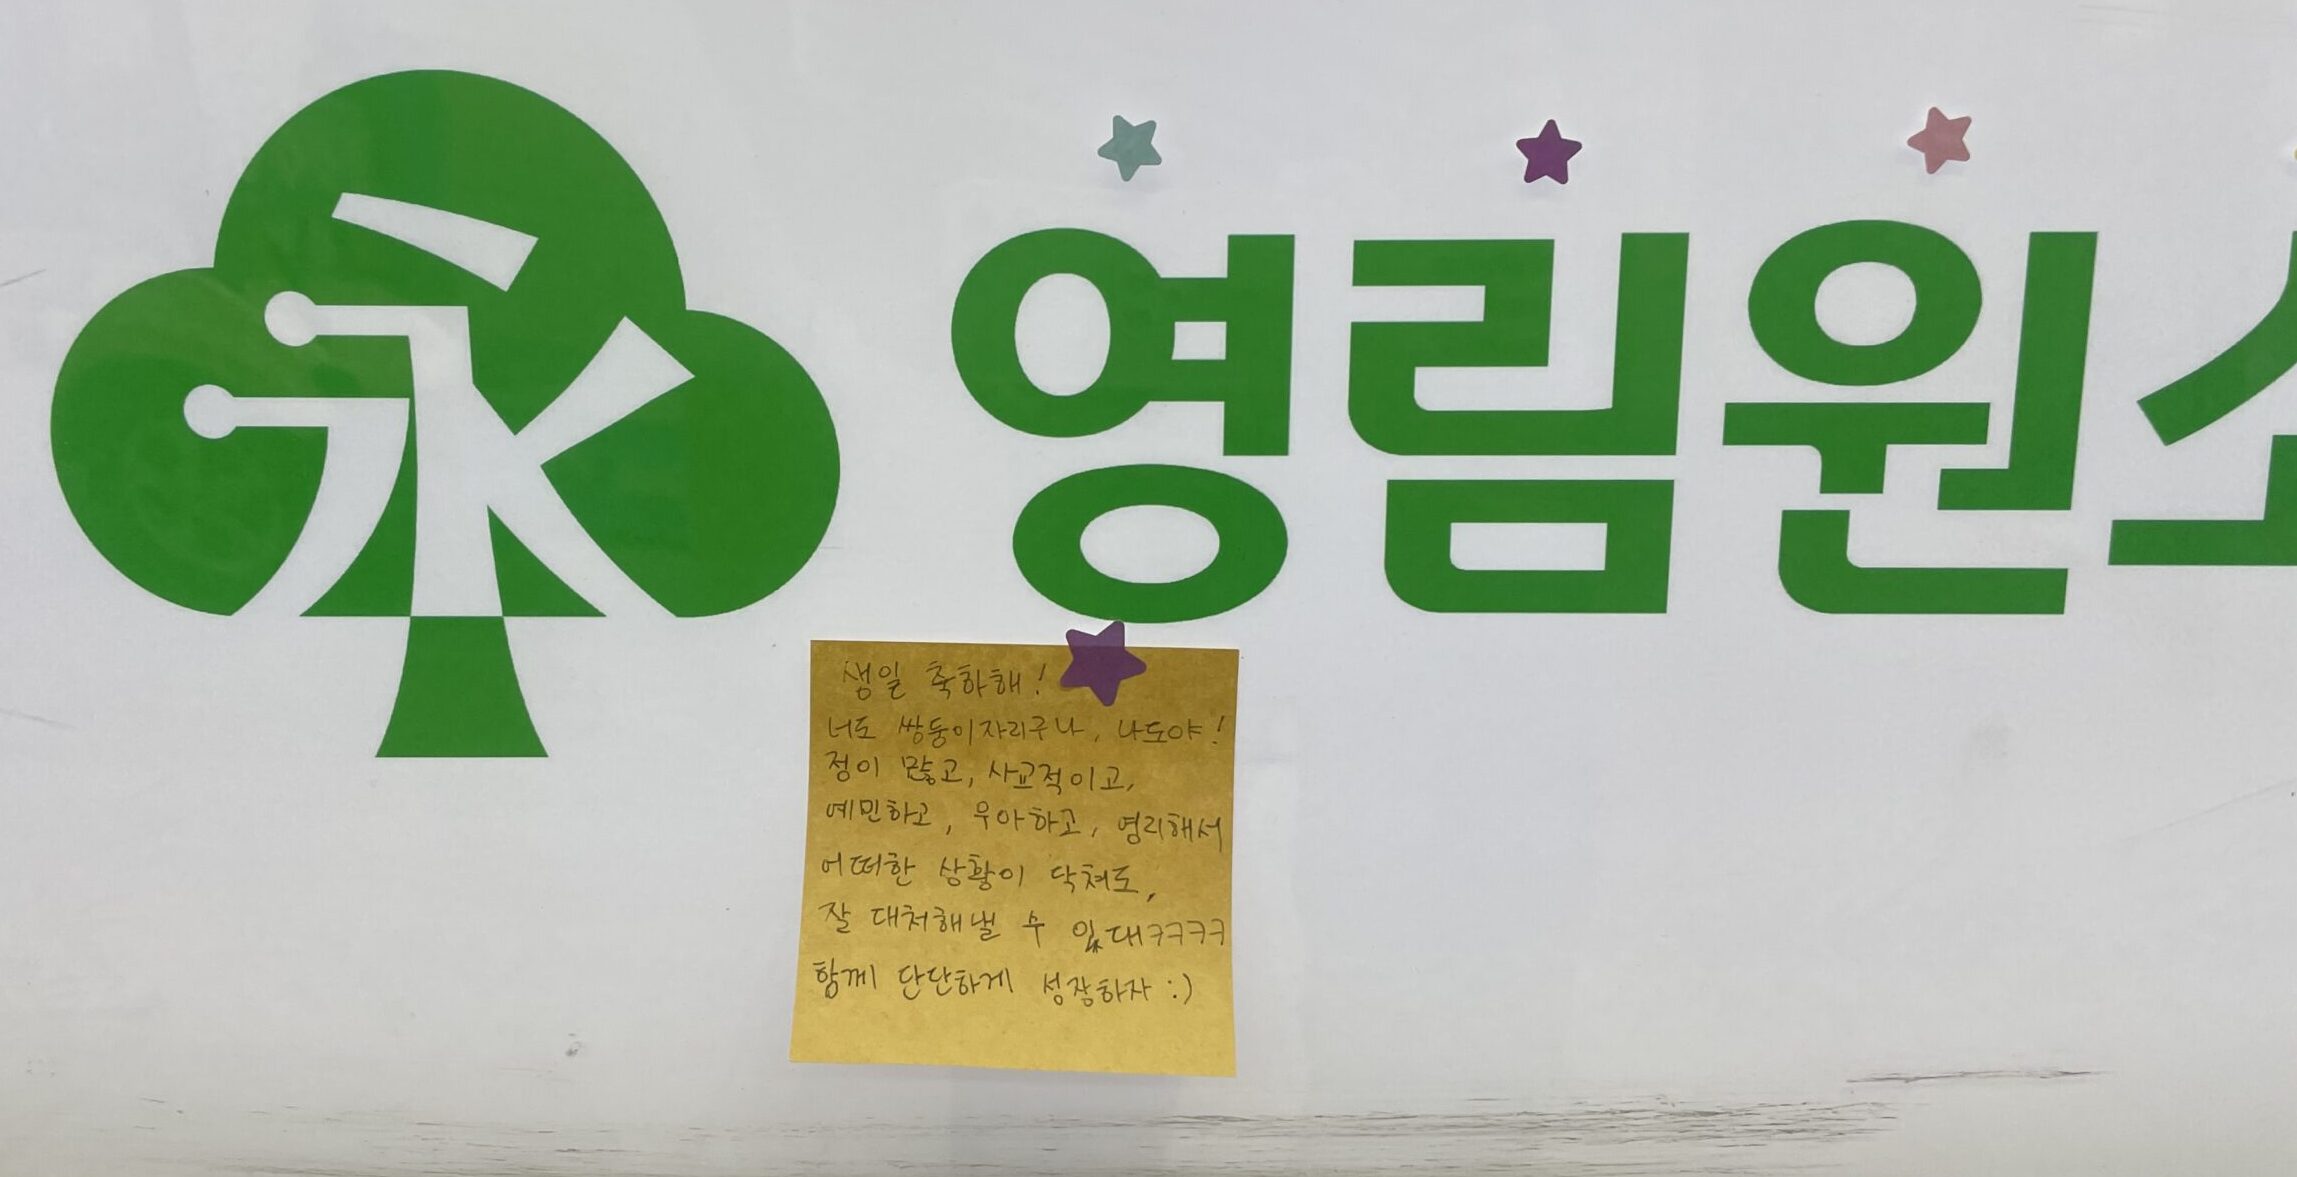 영림원소
생일 축하해!
너도 쌍둥이자리구나, 나도야!
정이 많고, 사교적이고,
예민하고, 우아하고, 영리해서
어떠한 상황이 닥쳐도,
잘 대처해낼 수 있대ㅋㅋㅋㅋ
함께 단단하게 성장하자 :)